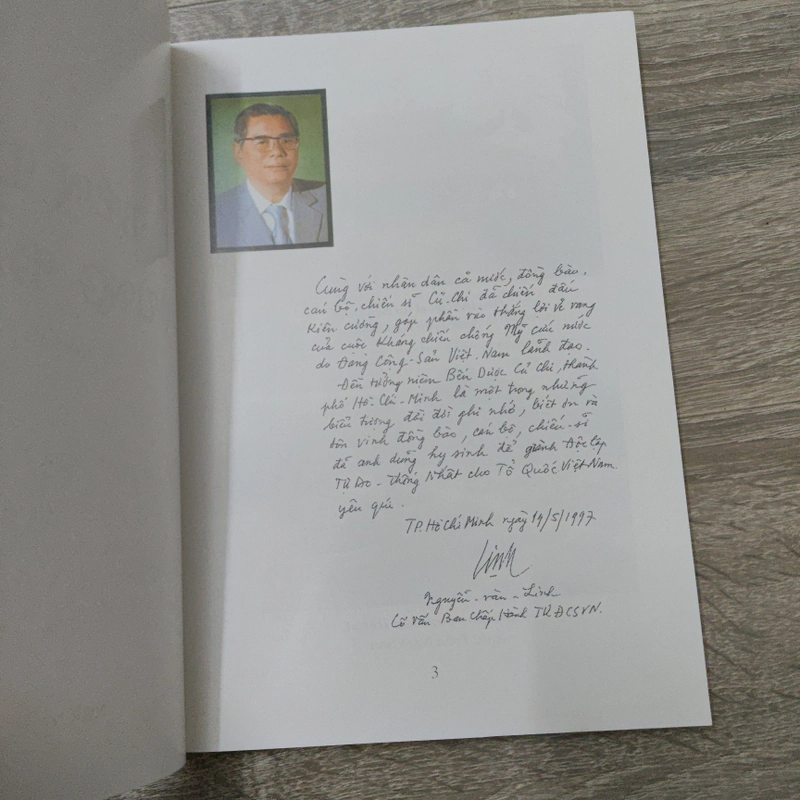 Cùng với nhân dân cả nước, đồng bào,
cán bộ, chiến sĩ Củ. Chi đã chiến đấu
Kiên cường, góp phần vào thắng lợi vẻ vang
của cuộc Kháng chiến chống Mỹ cứu nước
do Đảng Cộng-Sản Việt-Nam lãnh đạo.
Đền tưởng niệm Bến Dược Củ Chi, thành
phố Hồ-Chí-Minh là một trong những
biểu tượng đời đời ghi nhớ, biết ơn và
tôn vinh đồng bào, cán bộ, chiến-sĩ
đã anh dũng hy sinh để giành Độc lập
Tự Do - Thống Nhất cho Tổ Quốc Việt Nam
yêu quí.
TP. Hồ Chí Minh ngày 19/5/1997
Linh
Nguyễn-văn-Linh
Cố vấn Ban Chấp Hành TƯ ĐCSVN.
3